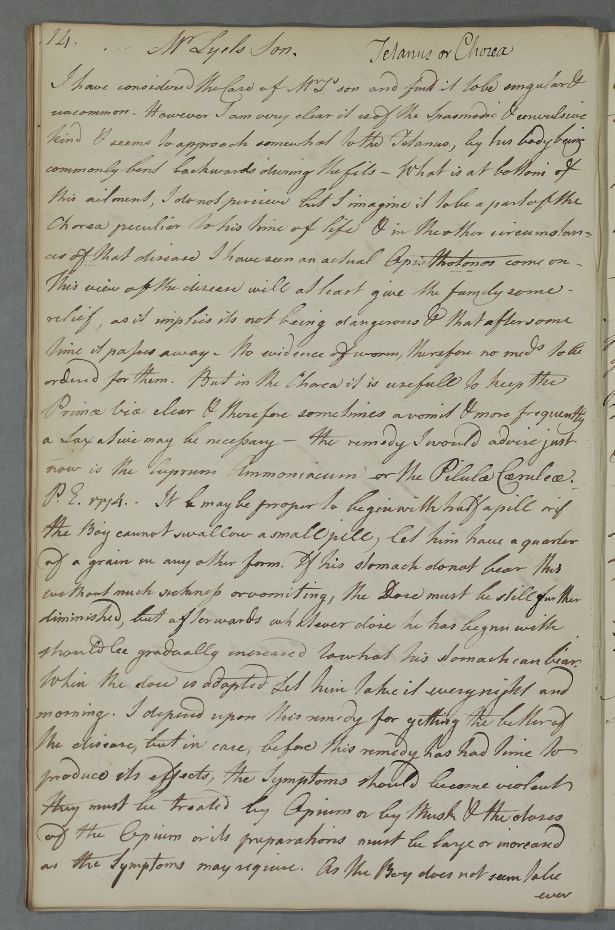 14.
Mr Lyels Son. Tetanus or Chorea
I have considered the Case of Mr Ls son and find it to be singular &
uncommon. However I am very clear it is of the Spasmodic & convulsive
kind & seems to approach somewhat to the Tetanus, by his body being
commonly bent backwards during the fits – What is at bottom of
this ailment, I do not percieve but I imagine it to be a part of the
Chorea peculiar to his time of life & in the other circumstan=
ces of that disease I have seen an actual Opisthotonos come on –
This view of the disease will at least give the family some
relief, as it implies its not being dangerous & that after some
time it passes away – No evidence of worms, therefore no meds to be
ordered for them. But in the Chorea it is usefull to keep the
Primæ viæ clear & therefore sometimes a vomit & more frequently
a Laxative may be necessary – the remedy I would advise just
now is the Cuprum Ammoniacum or the Pilulæ Cæruleæ.
P. E. 1774. – It may be proper to begin with half a pill or if
the Boy cannot swallow a small pill, let him have a quarter
of a grain in any other form. If his stomach do not bear this
without much sickness or vomiting, the Dose must be still further
diminished, but afterwards whatever dose he has begun with
should be gradually increased to what his stomach can bear.
When the dose is adapted Let him take it every night and
morning. I depend upon this remedy for getting the better of
the disease, but in case, before this remedy has had time to
produce its effects, the Symptoms should become violent
they must be treated by Opium or by Musk & the doses
of the Opium or its preparations must be large or increased
as the Symptoms may require. As the Boy does not seem to be
ever